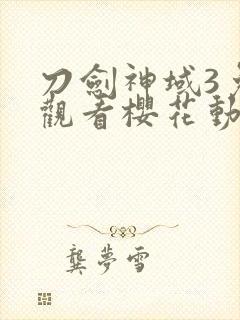 刀劍神域3
觀看櫻花動
龔夢雪